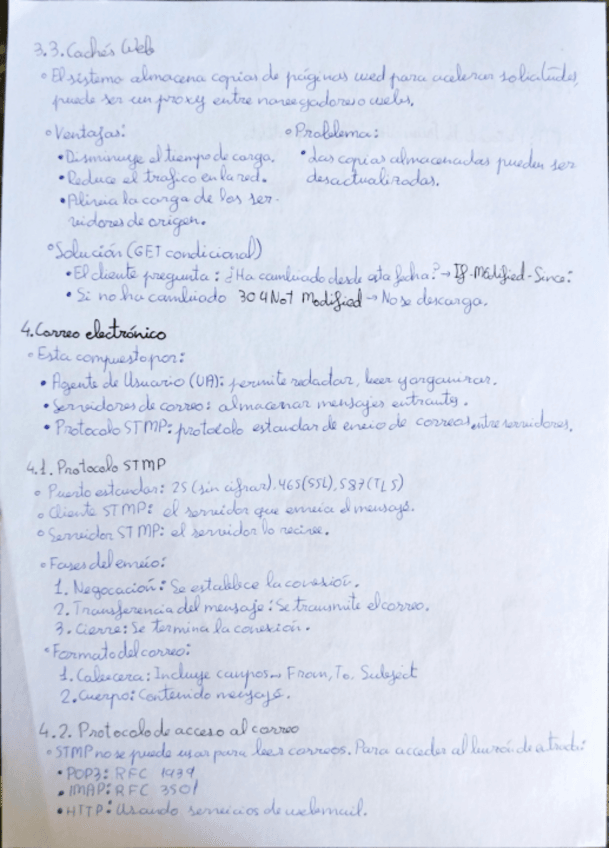 3.3. Cachés Web
• El sistema almacena copias de páginas wed para acelerar solicitudes,
puede ser un proxy entre navegadores o webs.
• Ventajas:
• Disminuye el tiempo de carga.
• Reduce el trafico en la red.
• Alivia la carga de los ser-
vidores de origen.
• Problema:
• Las copias almacenadas pueden ser
desactualizadas.
• Solución (GET condicional)
• El cliente pregunta: ¿Ha cambiado desde esta fecha? → If-Modified-Since:
• Si no ha cambiado 304 Not Modified → No se descarga.
4. Correo electrónico
• Esta compuesto por:
• Agente de Usuario (UA): permite redactar, leer y organizar.
• Servidores de correo: almacenar mensajes entrantes.
• Protocolo STMP: protocolo estandar de envio de correos entre servidores.
4.1. Protocolo STMP
• Puerto estandar: 25 (sin cifrar), 465 (SSL), 587 (TLS)
• Cliente STMP: el servidor que envia el mensaje.
• Servidor STMP: el servidor lo recibe.
• Fases del envio:
1. Negocación: Se establece la conexión.
2. Transferencia del mensaje: Se transmite el correo.
3. Cierre: Se termina la conexión.
• Formato del correo:
1. Cabecera: Incluye campos → From, To, Subject
2. Cuerpo: Contenido mensaje.
4.2. Protocolo de acceso al correo
• STMP no se puede usar para leer correos. Para acceder al buzón de entrada:
• POP3: RFC 1939
• IMAP: RFC 3501
• HTTP: Usando servicios de webmail.